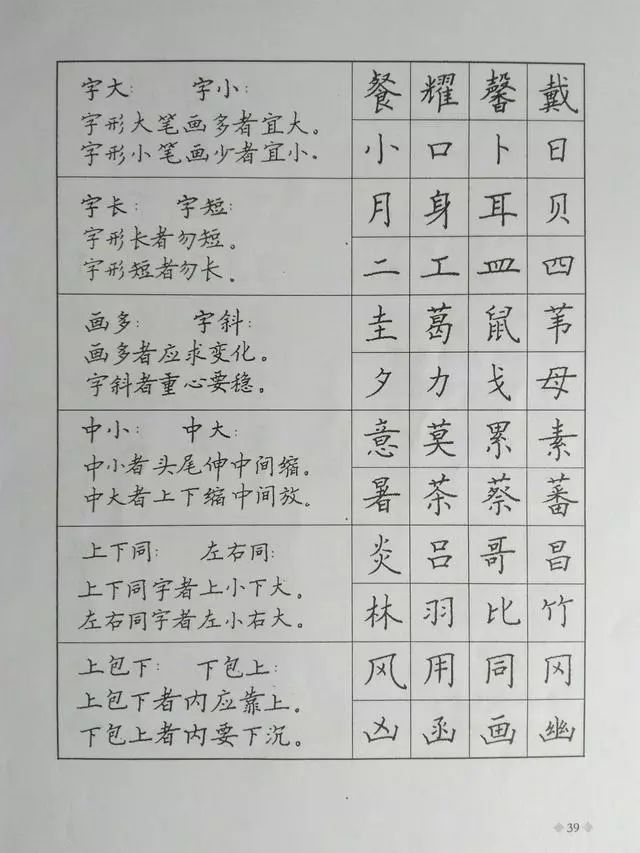 字大： 字小：
字形大笔画多者宜大。
字形小笔画少者宜小.
餐 耀 馨 戴
小 口 卜 日
字长： 字短：
字形长者勿短。
字形短者勿长。
月 身 耳 贝
二 工 皿 四
画多： 字斜：
画多者应求变化。
字斜者重心要稳。
圭 葛 鼠 苇
夕 力 戈 母
中小： 中大：
中小者头尾伸中间缩。
中大者上下缩中间放。
意 莫 累 素
暑 茶 蔡 蕃
上下同： 左右同：
上下同字者上小下大。
左右同字者左小右大。
炎 吕 哥 昌
林 羽 比 竹
上包下： 下包上：
上包下者内应靠上。
下包上者内要下沉。
风 用 同 冈
凶 函 画 幽
39